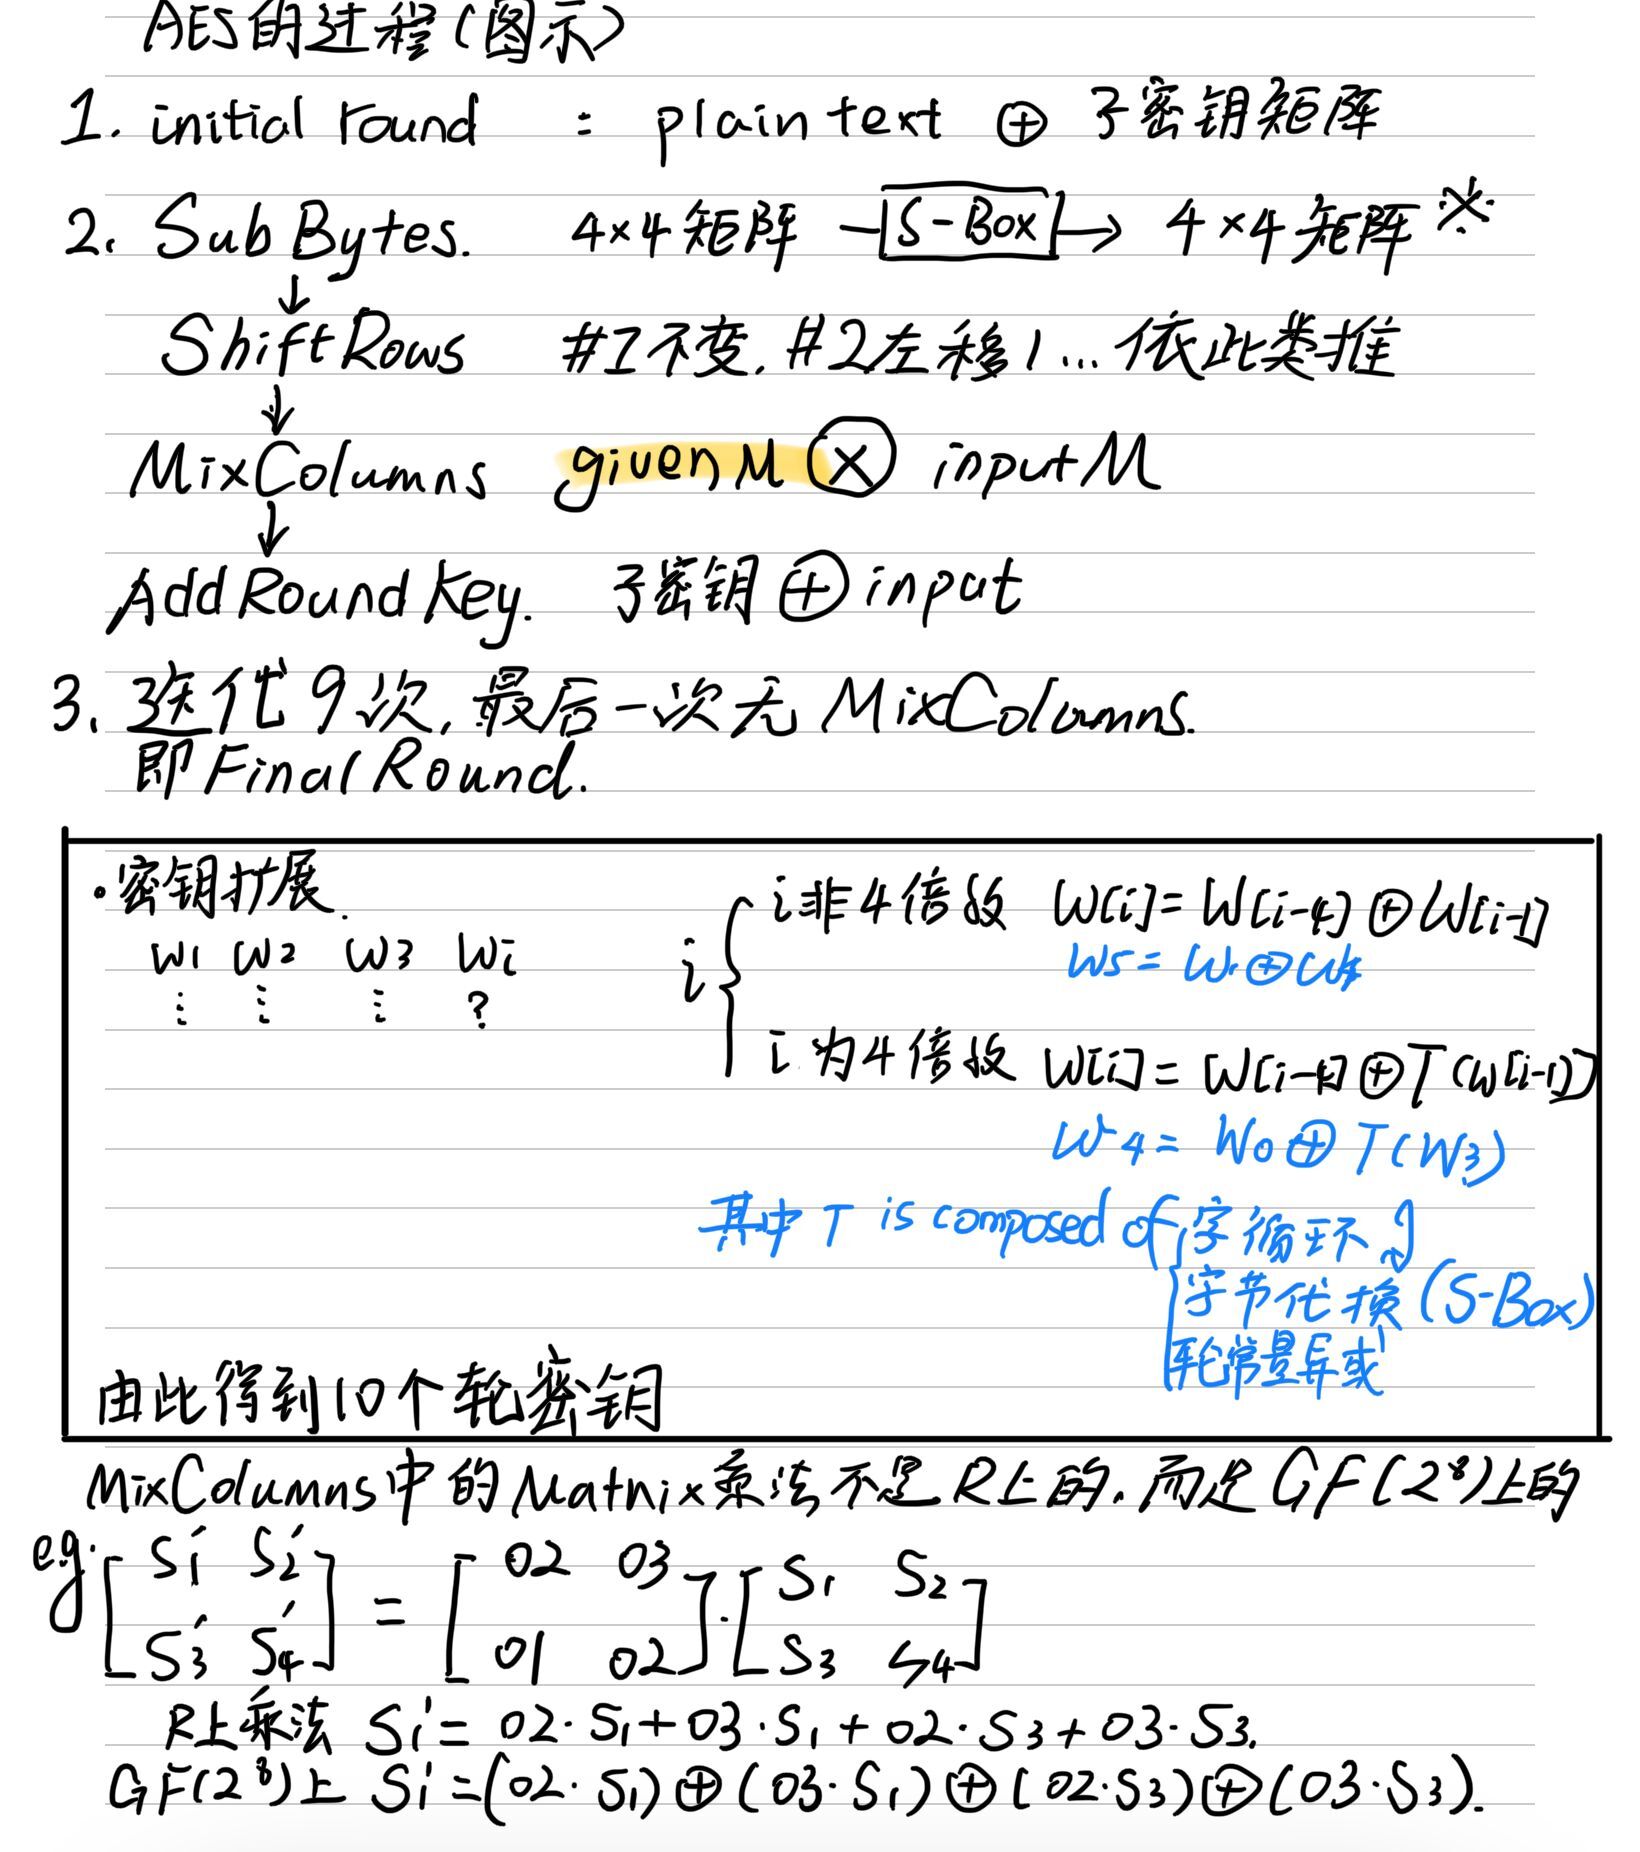 AES的过程(图示)
1. initial round : plain text ⊕ 子密钥矩阵
2. SubBytes. 4×4矩阵 -[S-Box]→ 4×4矩阵※
↓
ShiftRows #1不变, #2左移1...依此类推
↓
MixColumns given M ⊗ input M
↓
Add Round Key. 子密钥 ⊕ input
3. 迭代9次, 最后一次无MixColumns.
即Final Round.
·密钥扩展.
W1 W2 W3 Wi
⋮ ⋮ ⋮ ?
i { i非4倍数 W[i]=W[i-4]⊕W[i-1]
W5=W1⊕W4
i为4倍数 W[i]=W[i-4]⊕T(W[i-1])
W4=W0⊕T(W3)
其中 T is composed of { 字循环
字节代换(S-Box)
轮常量异或
由此得到10个轮密钥
MixColumns中的Matrix乘法不是R上的,而是GF(2⁸)上的
e.g. [S1' S2'] = [02 03] · [S1 S2]
[S3' S4'] [01 02] [S3 S4]
R上乘法 S1'=02·S1+03·S1+02·S3+03·S3.
GF(2⁸)上 S1'=(02·S1)⊕(03·S1)⊕(02·S3)⊕(03·S3).